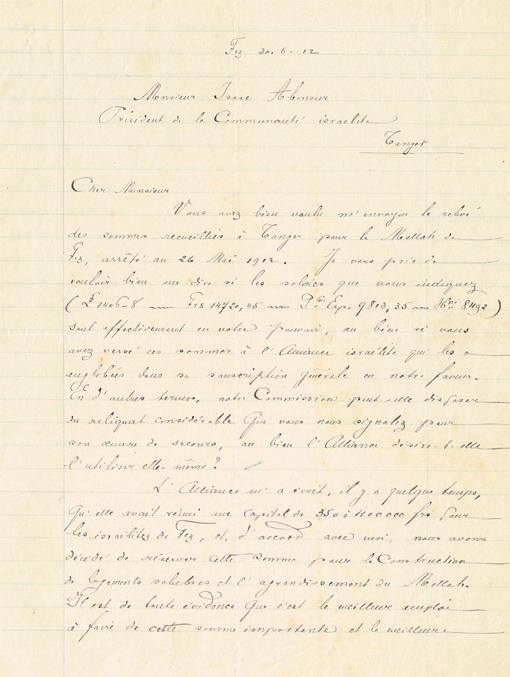 Fez 30.6.12
Monsieur Isaac Abensur
Président de la Communauté israelite
Tanger
Cher Monsieur
Vous avez bien voulu m'envoyer le relevé
des sommes recueillies à Tanger pour le Mellah de
Fez, arrêté au 26 Mai 1912. Je vous prie de
vouloir bien me dire si les soldes que vous indiquez
( £ 1406-8 Frs 14720,45 Ptas Esp. 9813,35 Hni 8492 )
sont effectivement en votre pouvoir, ou bien si vous
avez versé ces sommes à l'Alliance israélite qui les a
englobées dans sa souscription générale en notre faveur.
En d'autres termes, notre Commission peut-elle disposer
du reliquat considérable que vous nous signalez pour
son œuvre de secours, ou bien l'Alliance désire-t-elle
l'utiliser elle-même ?
L'Alliance m'a écrit, il y a quelque temps,
qu'elle avait réuni un capital de 350 à 400000 frs pour
les israélites de Fez, et, d'accord avec moi, nous avons
décidé de réserver cette somme pour la Construction
de logements salubres et l'agrandissement du Mellah.
Il est de toute évidence que c'est le meilleur emploi
à faire de cette somme importante et le meilleur